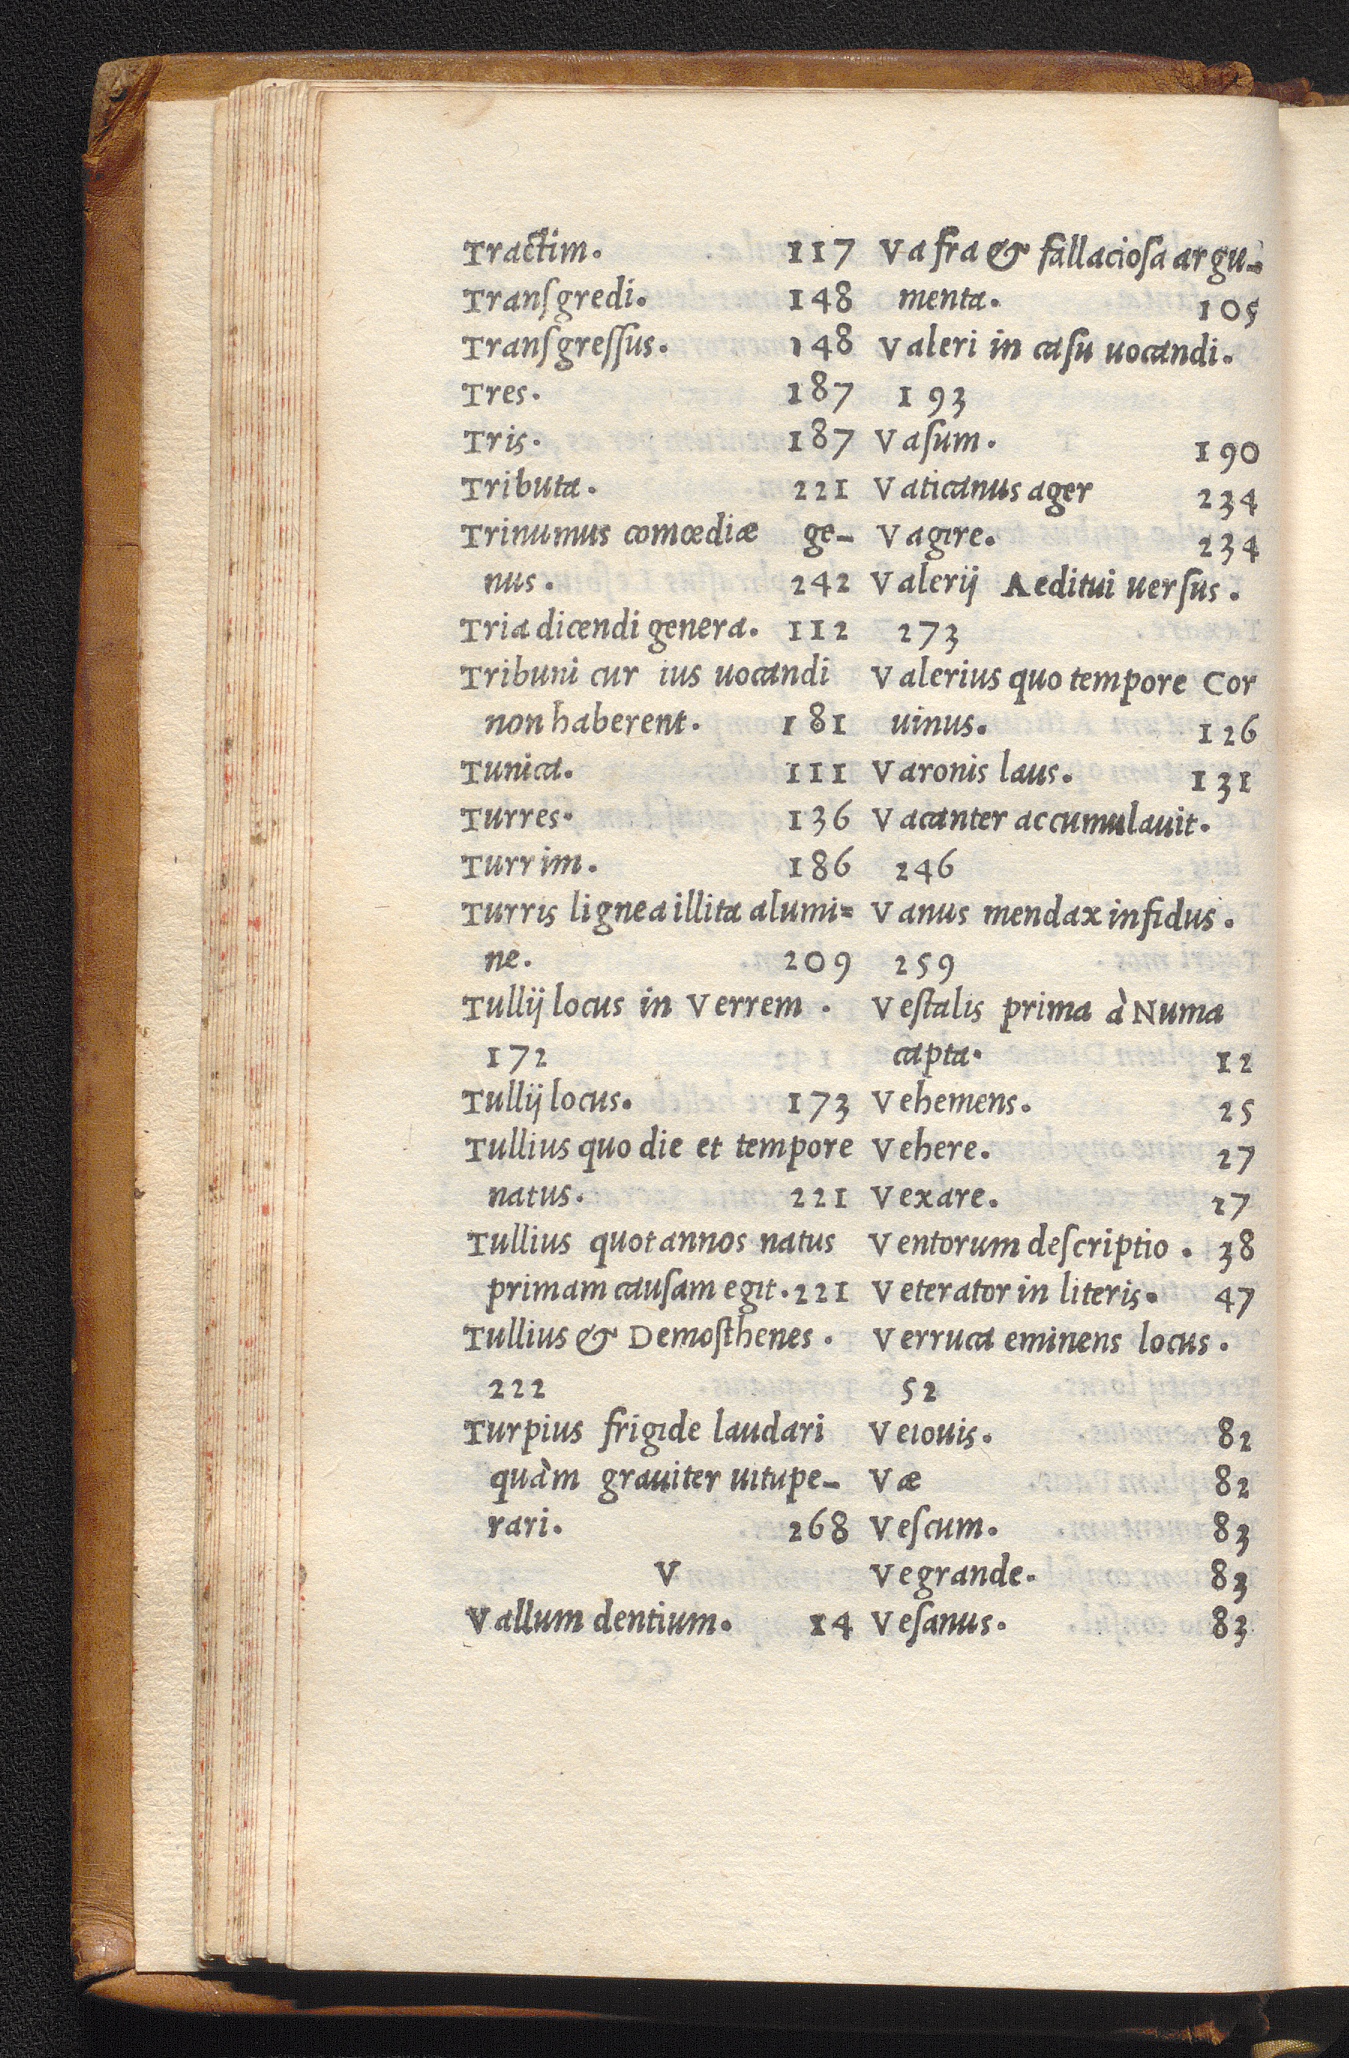 Tractim. 117
Transgredi. 148
Transgressus. 148
Tres. 187
Tris. 187
Tributa. 221
Trinumus comœdiæ ge-
nus. 242
Tria dicendi genera. 112
Tribuni cur ius uocandi
non haberent. 181
Tunica. 111
Turres. 136
Turrim. 186
Turris lignea illita alumi=
ne. 209
Tullij locus in Verrem.
172
Tullij locus. 173
Tullius quo die et tempore
natus. 221
Tullius quot annos natus
primam causam egit. 221
Tullius & Demosthenes.
222
Turpius frigide laudari
quàm grauiter uitupe-
rari. 268
V
Vallum dentium. 14
Vafra & fallaciosa argu-
menta. 105
Valeri in casu uocandi.
193
Vasum. 190
Vaticanus ager 234
Vagire. 234
Valerij Aeditui uersus.
273
Valerius quo tempore Cor
uinus. 126
Varonis laus. 131
Vacanter accumulauit.
246
Vanus mendax infidus.
259
Vestalis prima à Numa
capta. 12
Vehemens. 25
Vehere. 27
Vexare. 27
Ventorum descriptio. 38
Veterator in literis. 47
Verruca eminens locus.
52
Veiouis. 82
Væ 82
Vescum. 83
Vegrande. 83
Vesanus. 83